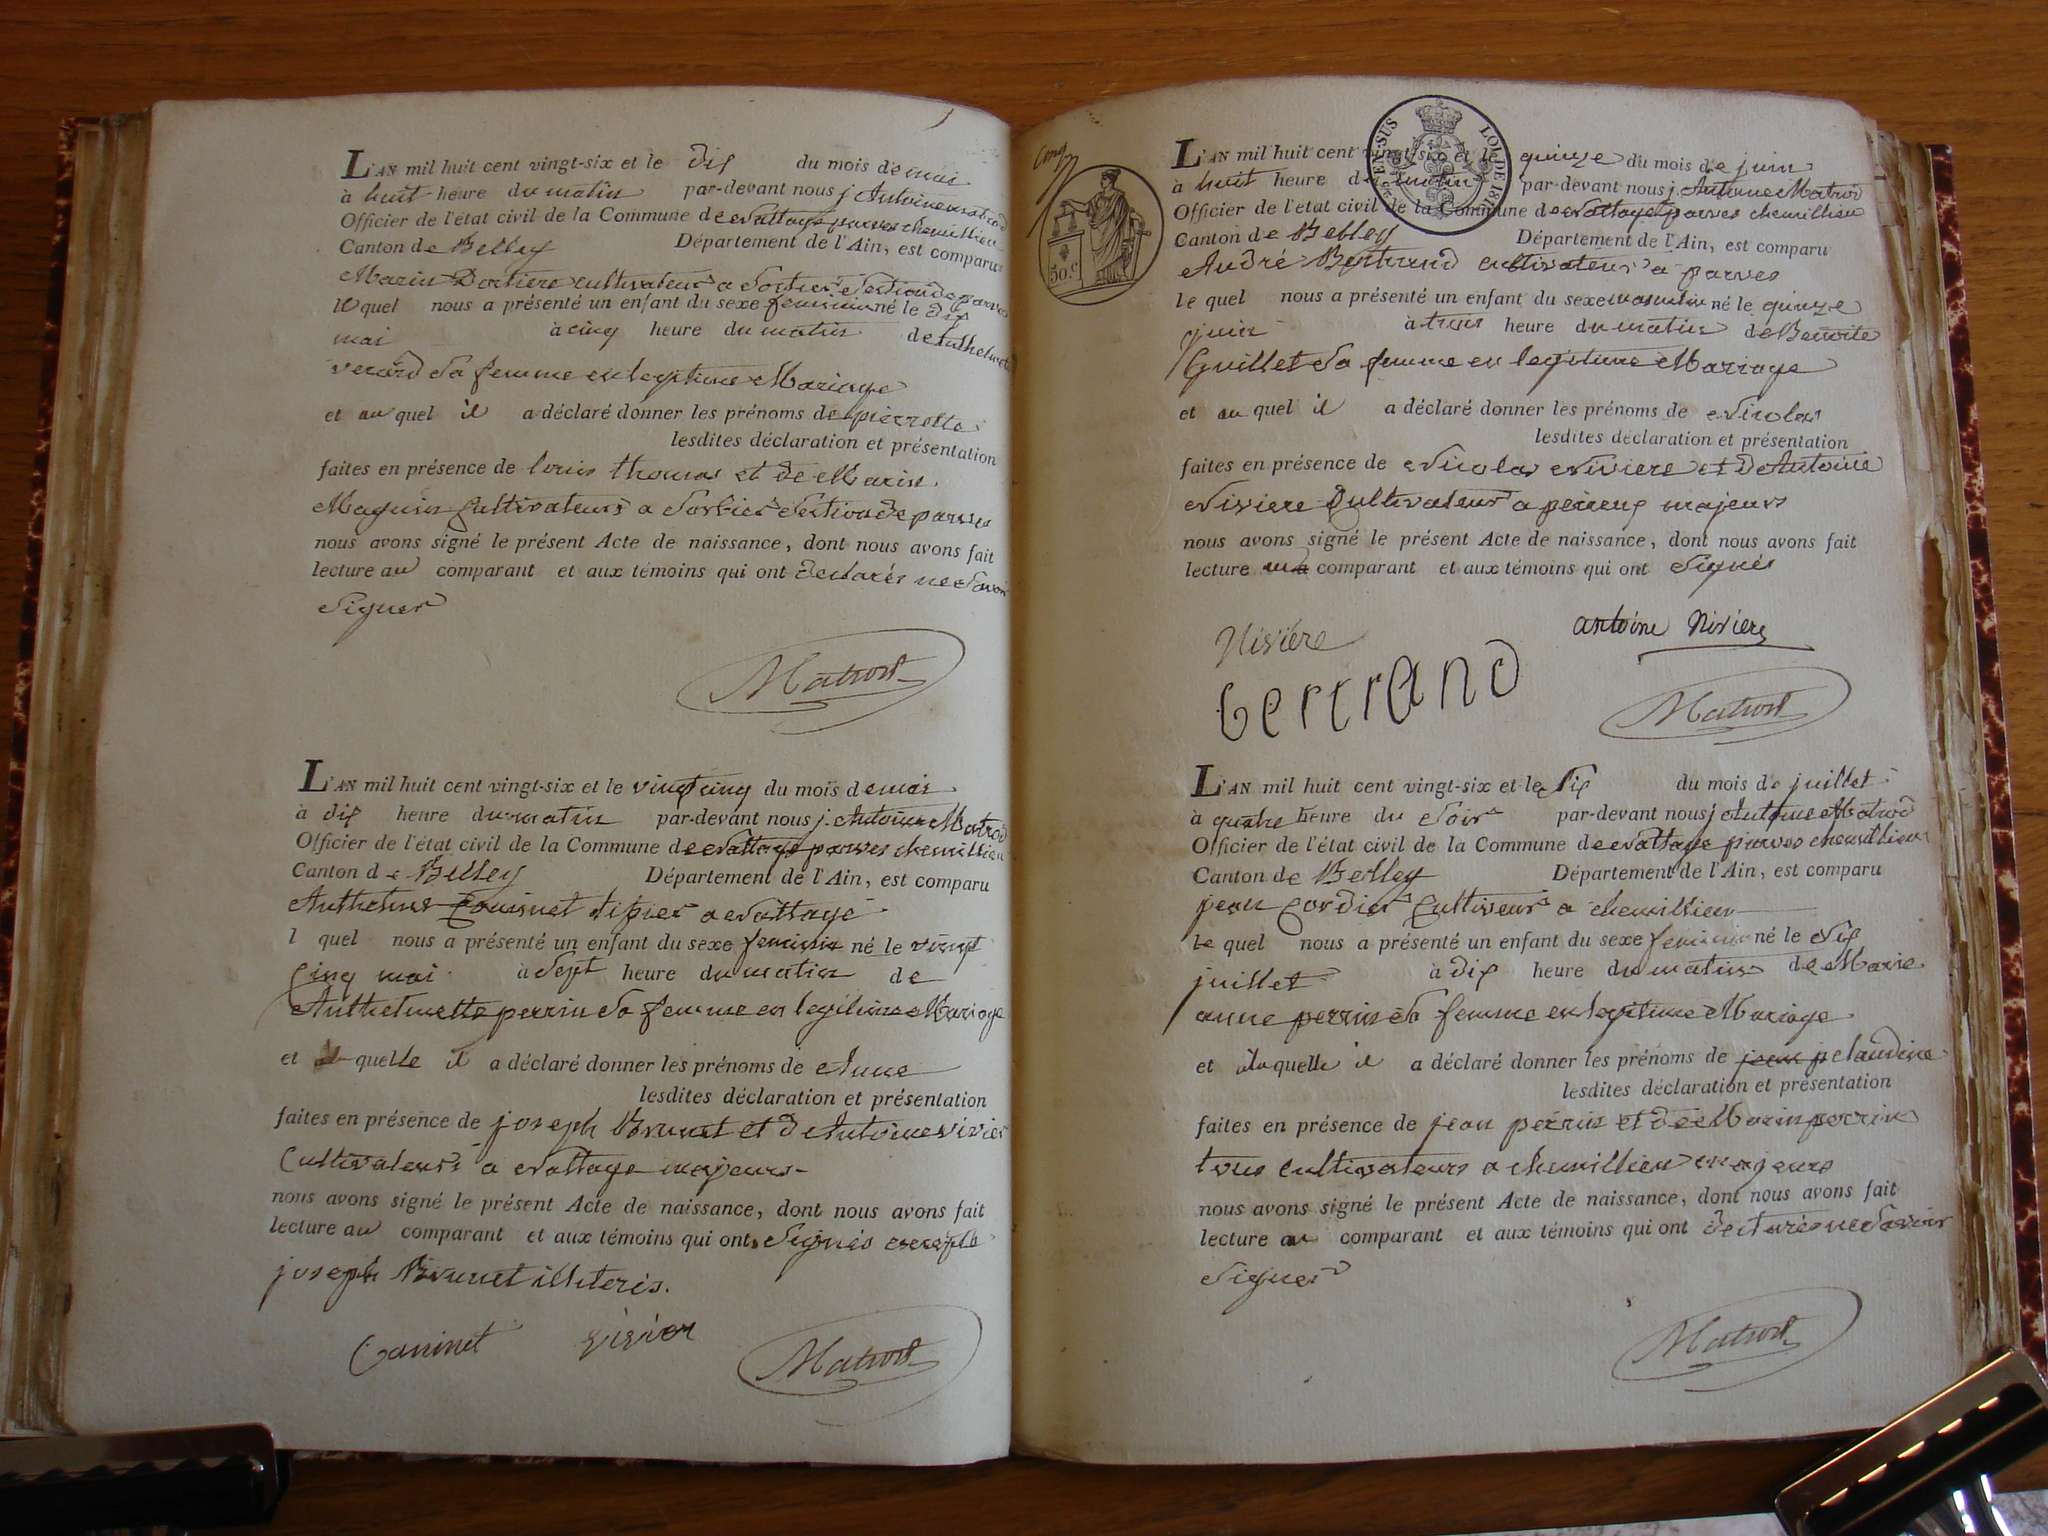 L'AN mil huit cent vingt-six et le dix du mois de mai
à huit heure du matin par-devant nous j Antoine Matrod
Officier de l'état civil de la Commune de Nattage parves chemillieu
Canton de Belley Département de l'Ain, est comparu
Marin cultivateur a Sorbier Section de parves
le quel nous a présenté un enfant du sexe feminin né le dix
mai à cinq heure du matin de
sa femme en legitime Mariage
et au quel il a déclaré donner les prénoms de pierrette
lesdites déclaration et présentation
faites en présence de louis thomas et de Marin
Maguin Cultivateurs a Sorbier Section de parves
nous avons signé le présent Acte de naissance, dont nous avons fait
lecture au comparant et aux témoins qui ont declarés ne Savoir
Signer
Matrod
L'AN mil huit cent vingt-six et le vingt cinq du mois de mai
à dix heure du matin par-devant nous j. Antoine Matrod
Officier de l'état civil de la Commune de Nattage parves chemillieu
Canton de Belley Département de l'Ain, est comparu
Anthelme tixier a Nattage
l quel nous a présenté un enfant du sexe feminin né le vingt
Cinq mai à Sept heure du matin de
Anthelmette perrin Sa femme en legitime Mariage
et a quelle il a déclaré donner les prénoms de Anne
lesdites déclaration et présentation
faites en présence de joseph Brunet et d Antoine vivier
Cultivateurs a Nattage majeurs
nous avons signé le présent Acte de naissance, dont nous avons fait
lecture au comparant et aux témoins qui ont Signés excepté
joseph Brunet illiteris.
Caninet vivier Matrod
Cinq
50.C
EN SUS LOI DE
L'AN mil huit cent vingt-six et le quinze du mois de juin
à huit heure du matin par-devant nous j. Antoine Matrod
Officier de l'état civil de la Commune de Nattage parves chemillieu
Canton de Belley Département de l'Ain, est comparu
André Bertrand cultivateur a parves
le quel nous a présenté un enfant du sexe masculin né le quinze
juin à trois heure du matin de Benoite
Guillet Sa femme en legitime Mariage
et au quel il a déclaré donner les prénoms de Nicolas
lesdites déclaration et présentation
faites en présence de Nicolas Niviere et d Antoine
Niviere Cultivateurs a majeurs
nous avons signé le présent Acte de naissance, dont nous avons fait
lecture au comparant et aux témoins qui ont Signés
antoine Niviere
Niviere
bertrand
Matrod
L'AN mil huit cent vingt-six et le dix du mois de juillet
à quatre heure du Soir par-devant nous j Antoine Matrod
Officier de l'état civil de la Commune de Nattage parves chemillieu
Canton de Belley Département de l'Ain, est comparu
jean Cordier Cultiveur a chemillieu
le quel nous a présenté un enfant du sexe feminin né le dix
juillet à dix heure du matin de Marie
anne perrin Sa femme en legitime Mariage
et a la quelle il a déclaré donner les prénoms de claudine
lesdites déclaration et présentation
faites en présence de jean perrin et de Marin perrin
tous cultivateurs a chemillieu majeurs
nous avons signé le présent Acte de naissance, dont nous avons fait
lecture au comparant et aux témoins qui ont declarés ne Savoir
Signer
Matrod